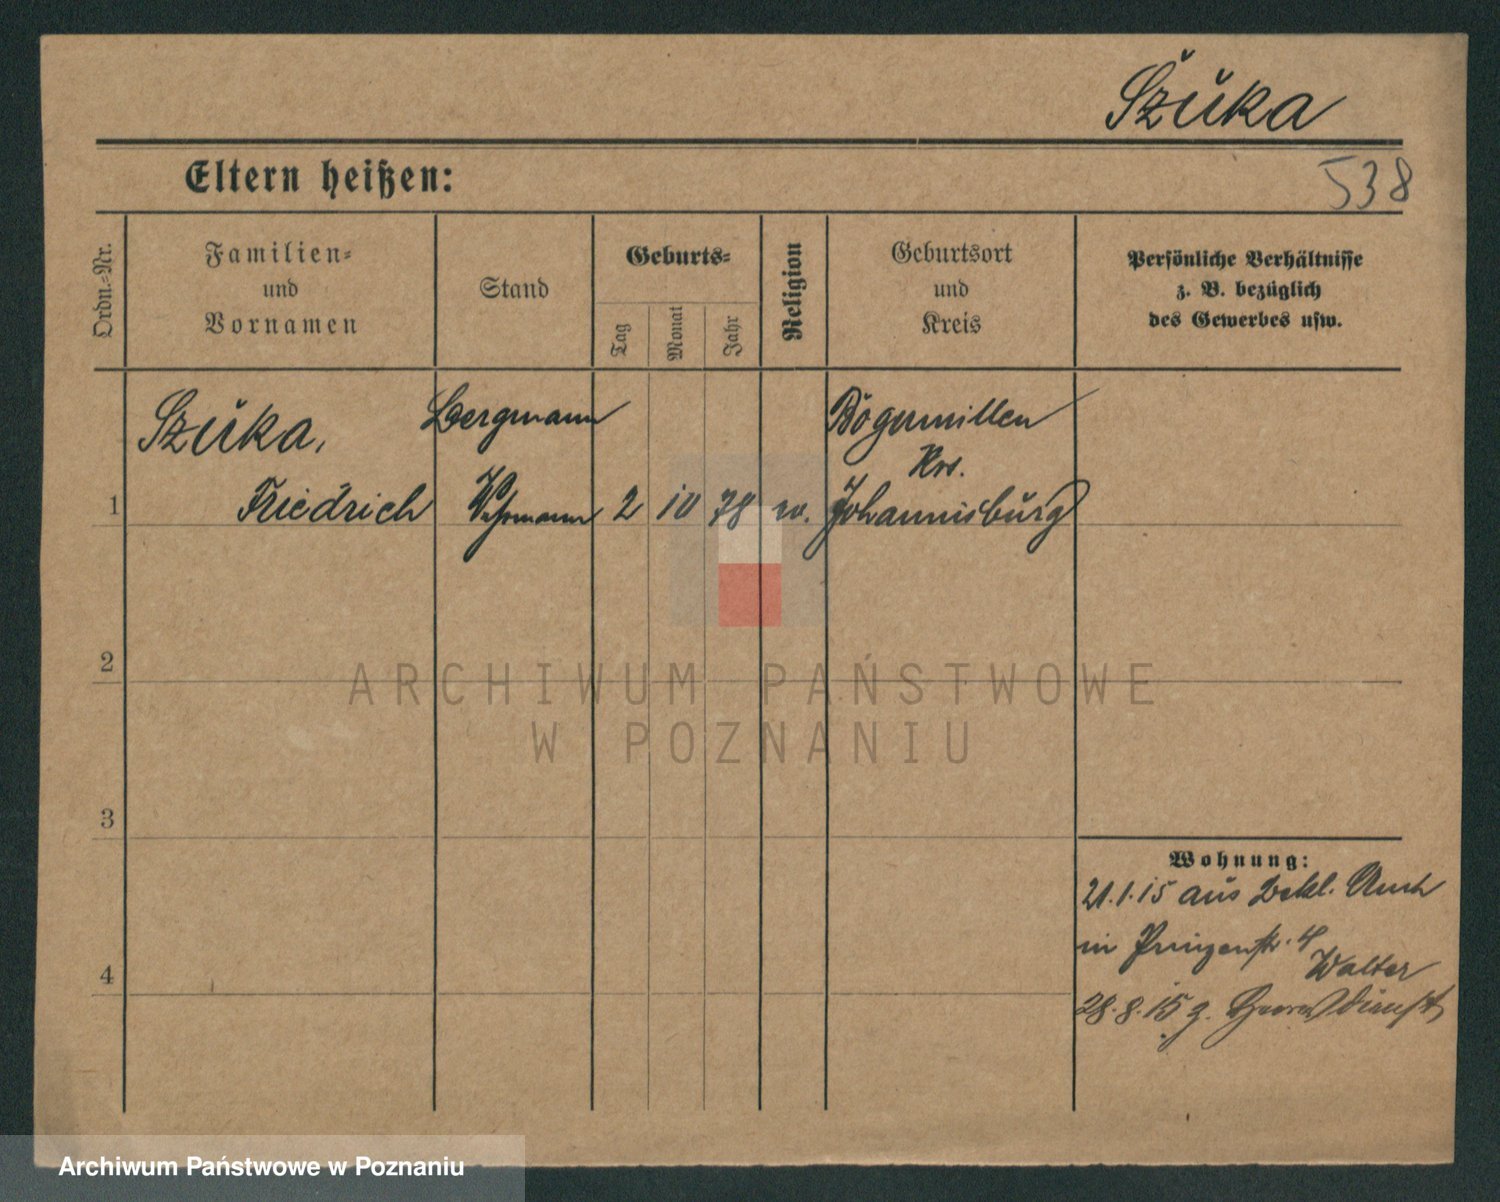 Szuka
Eltern heißen:
538
Ordn.-Nr.
Familien-
und
Vornamen
Stand
Geburts-
Tag
Monat
Jahr
Religion
Geburtsort
und
Kreis
Persönliche Verhältnisse
z. B. bezüglich
des Gewerbes usw.
Szuka,
Friedrich
Bergmann
Wehrmann
1
2 10 78
ev.
Krs.
Johannisburg
2
ARCHIWUM PAŃSTWOWE
W POZNANIU
3
Wohnung:
21.1.15 aus Bekl. Amt
in Prinzenstr. 4
Walter
4
28.8.15 z. Heeresdienst
Archiwum Państwowe w Poznaniu